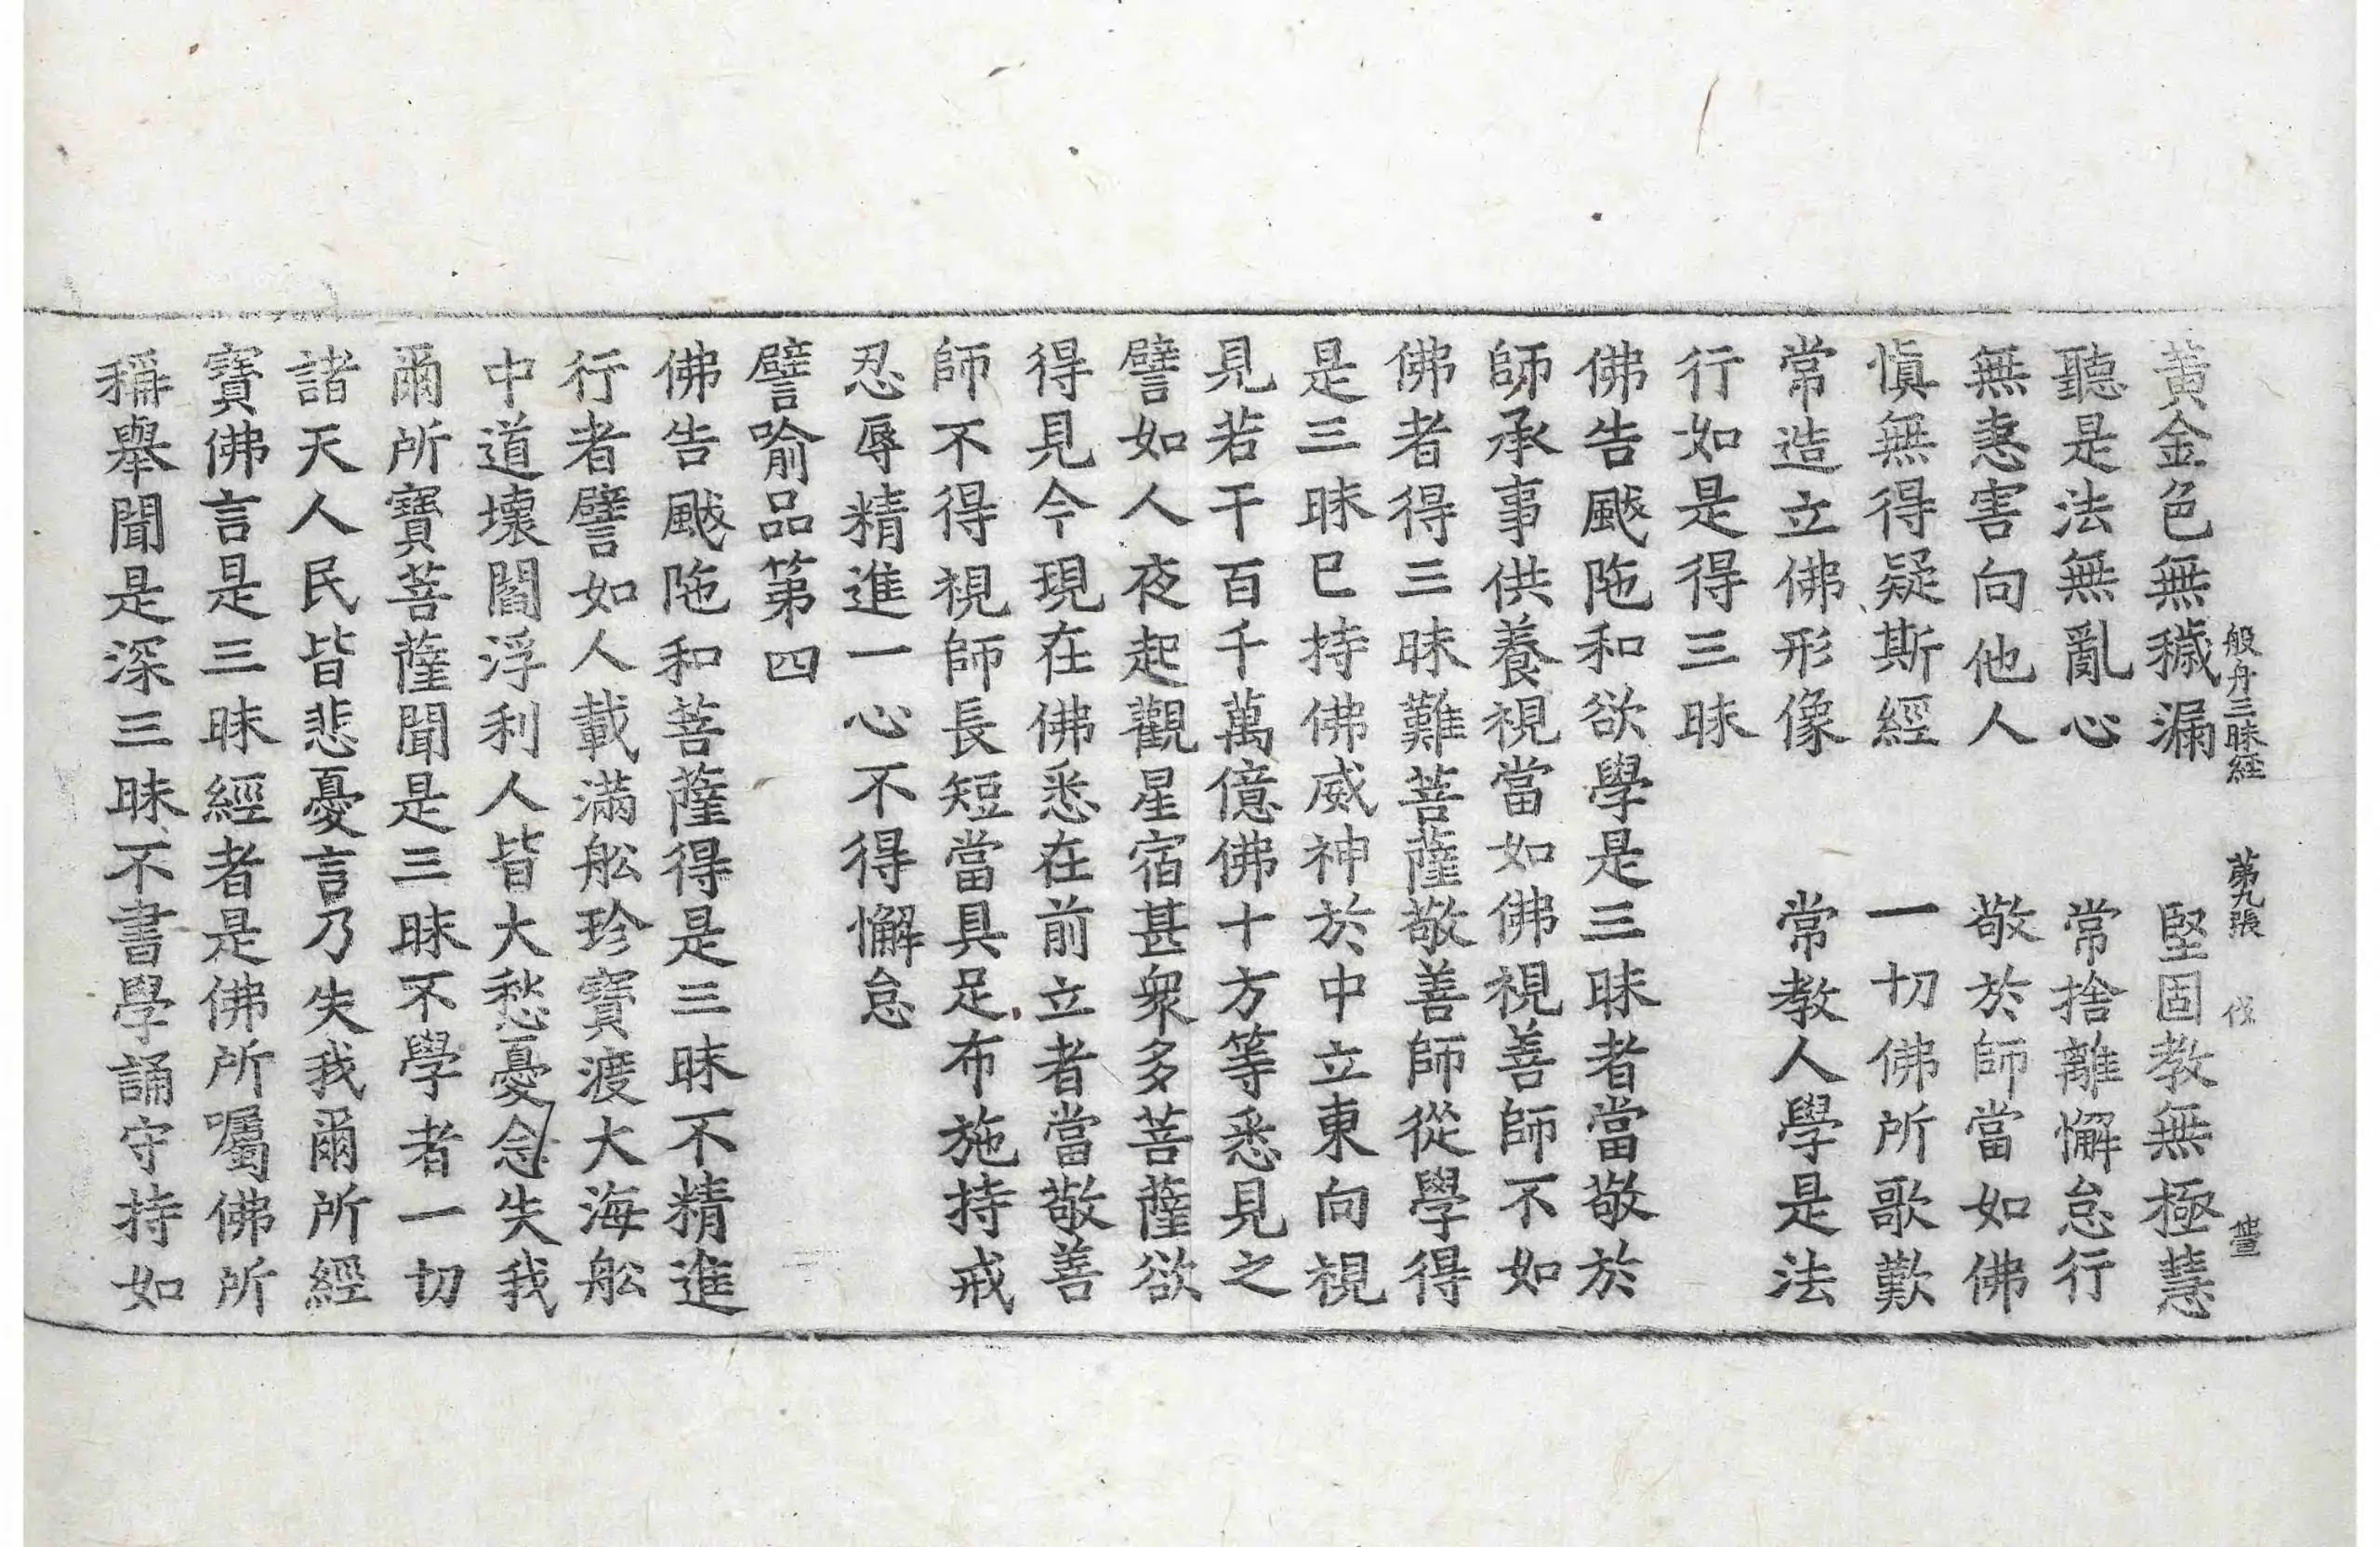 般舟三昧経　第九張　伐
黃金色無穢漏　堅固教無極慧
聽是法無亂心　常捨離懈怠行
無恚害向他人　敬於師當如佛
慎無得疑斯經　一切佛所歌歎
常造立佛形像　常教人學是法
行如是得三昧
佛告颰陁和欲學是三昧者當敬於
師承事供養視當如佛視善師不如
佛者得三昧難菩薩敬善師從學得
是三昧已持佛威神於中立東向視
見若干百千萬億佛十方等悉見之
譬如人夜起觀星宿甚衆多菩薩欲
得見今現在佛悉在前立者當敬善
師不得視師長短當具足布施持戒
忍辱精進一心不得懈怠
譬喻品第四
佛告颰陁和菩薩得是三昧不精進
行者譬如人載滿舩珍寶渡大海舩
中道壞閻浮利人皆大愁憂念失我
爾所寶菩薩聞是三昧不學者一切
諸天人民皆悲憂言乃失我爾所經
寶佛言是三昧經者是佛所囑佛所
稱舉聞是深三昧不書學誦守持如